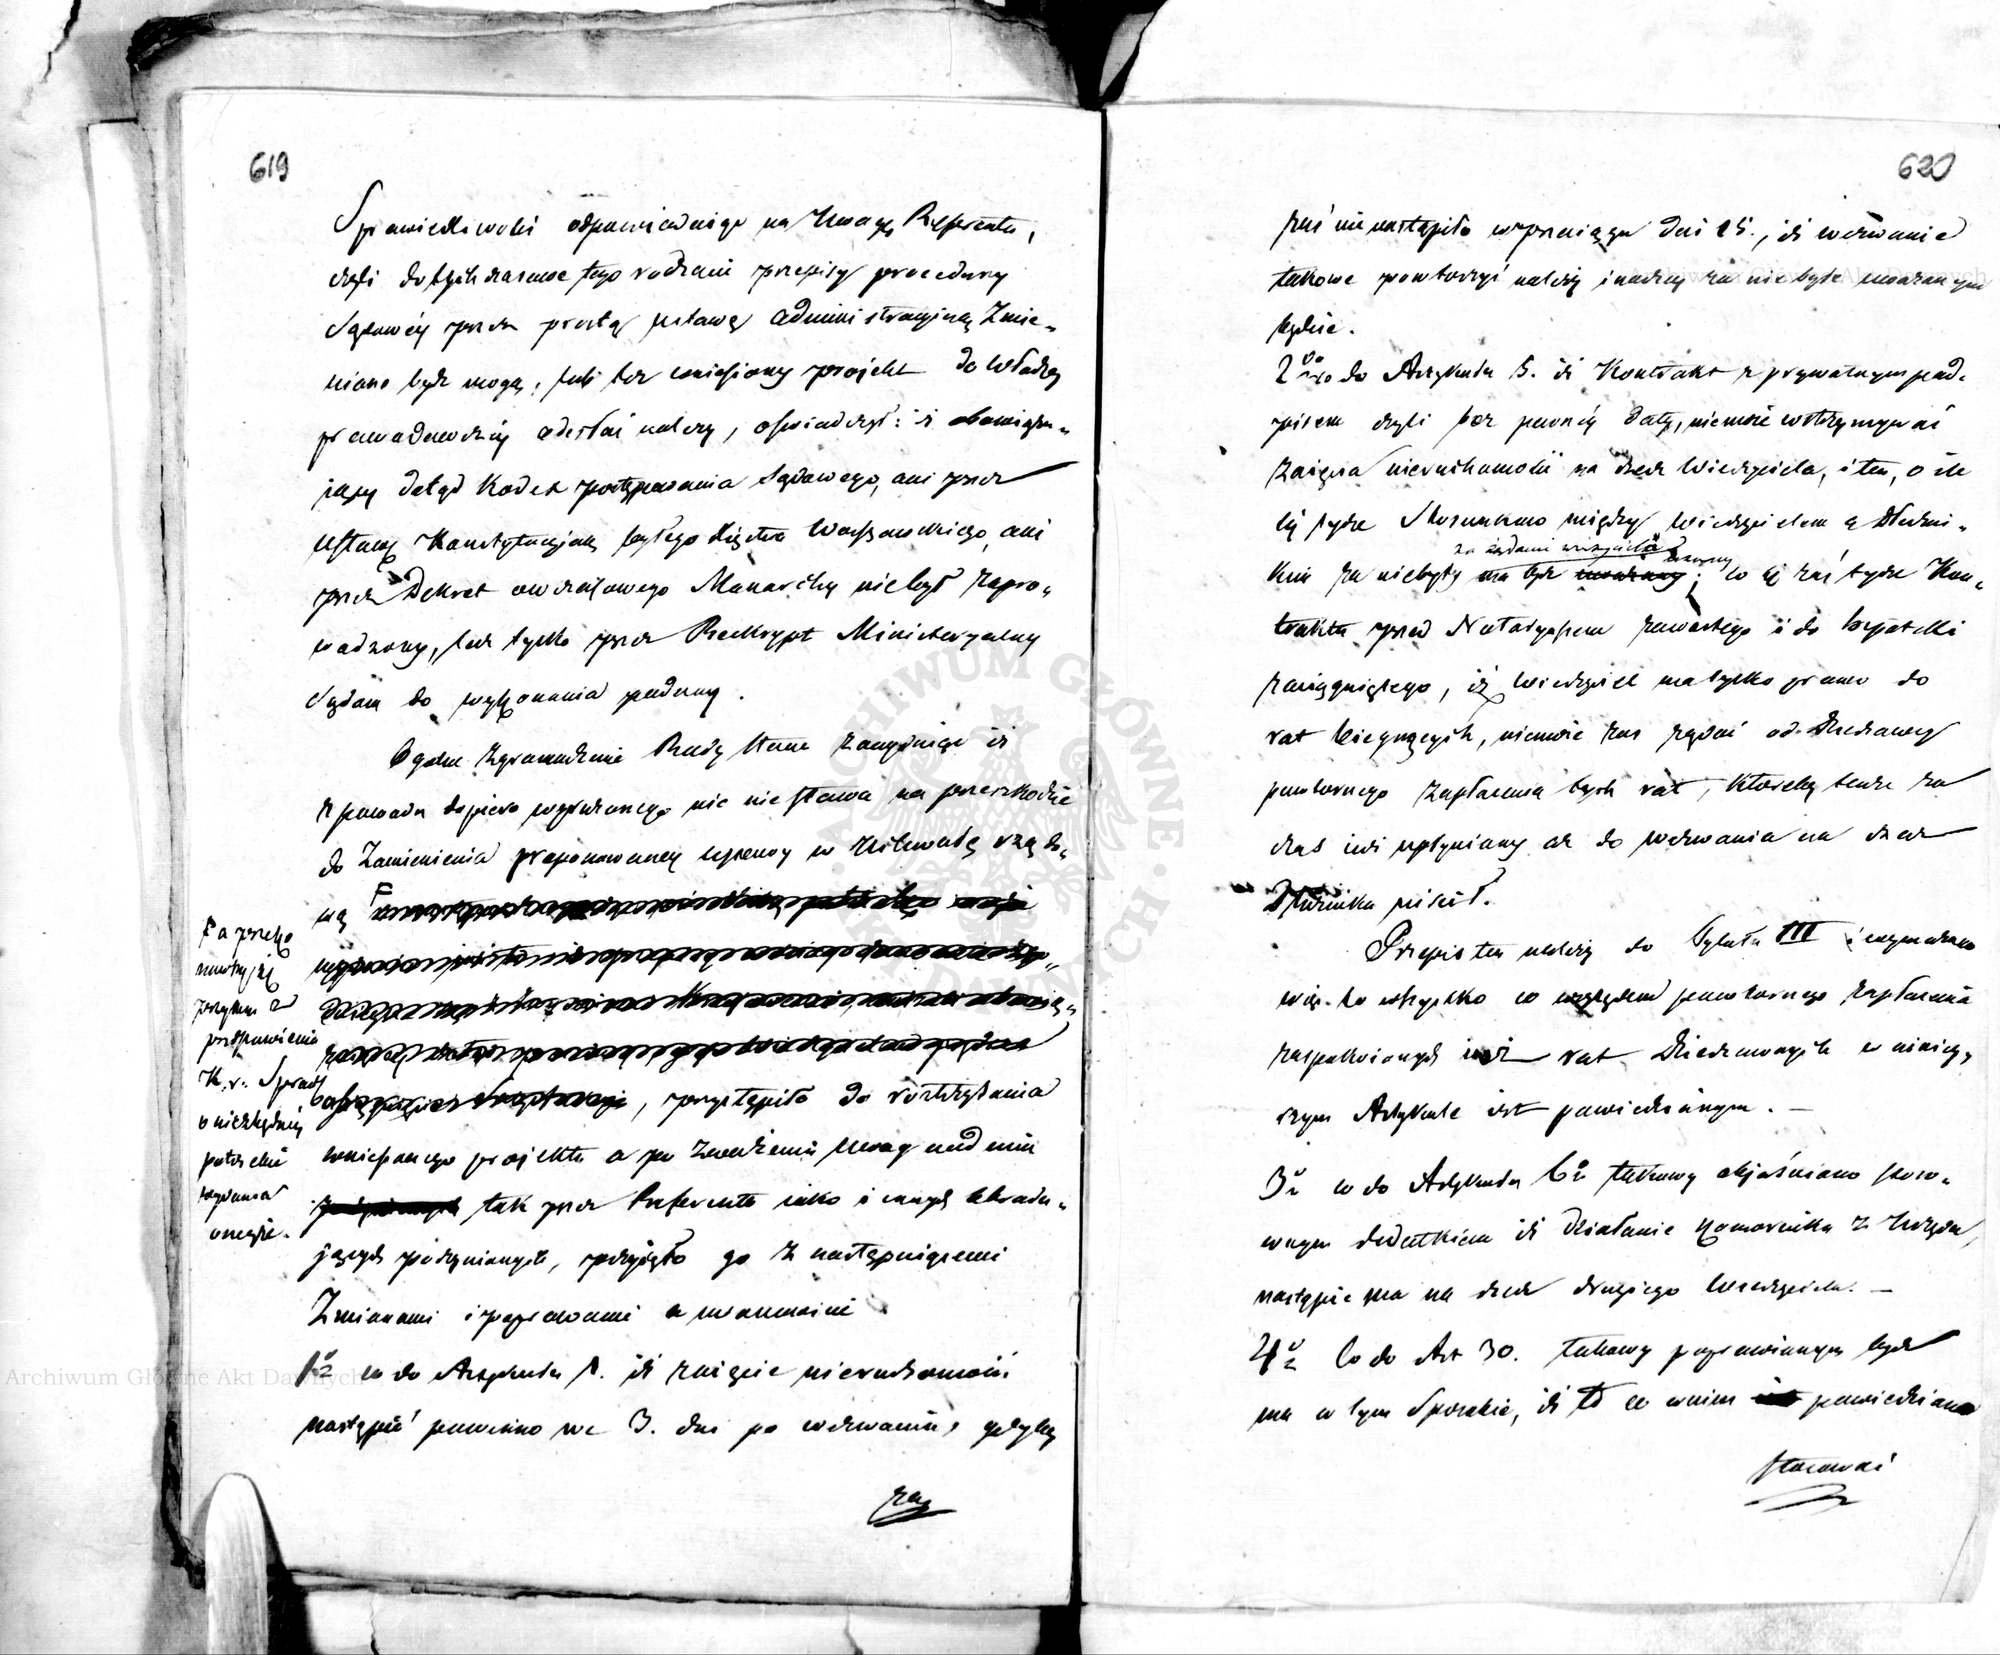 619
Sprawiedliwości odpowiadając na Uwagę Referenta,
czyli dotychczasowe tego rodzaju przepisy procedury
Sądowéy przez prostą ustawę administracyjną Zmie-
niane bydź mogą, lub też wniesiony projekt do Władzy
prawodawczéy odesłać należy, oświadczył: iż obowiązu-
jący dotąd Kodex postępowania Sądowego, ani przez
Ustawę Konstytucyjną byłego Xięstwa Warszawskiego, ani
przez Dekret ówczasowego Monarchy nie był zapro-
wadzony, lecz tylko przez Reskrypt Ministeryalny
Sądom do wykonania podany.
Ogólne Zgromadzenie Rady Stanu zważając iż
z powodu dopiero wyrażonego nic nie stawa na przeszkodzie
do Zamienienia proponowanéy ustawy w Uchwałę rządo-
wą
, przystąpiło do roztrząsania
wniesionego projektu a po zważeniu Uwag nad nim
tak przez Referenta jako i innych obradu-
jących poczynionych, przyjęło go z następującemi
Zmianami i poprawami a mianowicie
F a przeko
nawszy się
przytem z
przedstawienia
K. r. Spraw
o niezbędnéj
potrzebie
wydania
onegoż.
1o co do Artykułu 1. iż zajęcie nieruchomości
nastąpić powinno we 3. dni po wezwaniu, gdyby
zaś
620
zaś nie nastąpiło w przeciągu dni 15., iż wezwanie
takowe powtorzyć należy inaczej za nie byłe uważanym
będzie.
2do co do Artykułu 5. iż Kontrakt z prywatnym pod-
pisem czyli bez pewnéy daty, niemoże wstrzymywać
zajęcia nieruchomości na rzecz Wierzyciela, i ten, o ile
się tycze Stosunków między Wierzycielem a Dłużni-
kiem za niebyły na żądanie wierzyciela ma bydź uważany; co się zaś tycze Kon-
traktu przed Notaryuszem zawartego i do hypoteki
zaciągniętego, iż Wierzyciel ma tylko prawo do
rat bieżących, niemoże zaś żądać od Dzierżawcy
powtornego Zapłacenia tych rat, któreby tenże za
czas już upłyniony aż do wezwania na rzecz
Dłużnika uiścił.
Przepis ten należy do Tytułu III i wymazano
więc to wszystko co względem powtornego zapłacenia
zaspokoionych już rat Dzierżawnych w niniey-
szym Artykule jest powiedzianym. —
3o co do Artykułu 6o takowy objaśniono stoso-
wnym dodatkiem iż działanie Komornika z Urzędu,
nastąpić ma na rzecz drugiego Wierzyciela. —
4o Co do Art 30. takowy poprawionym bydź
ma w tym Sposobie, iż to co w nim powiedziano
stosować
Archiwum Główne Akt Dawnych
ARCHIWUM GŁÓWNE AKT DAWNYCH